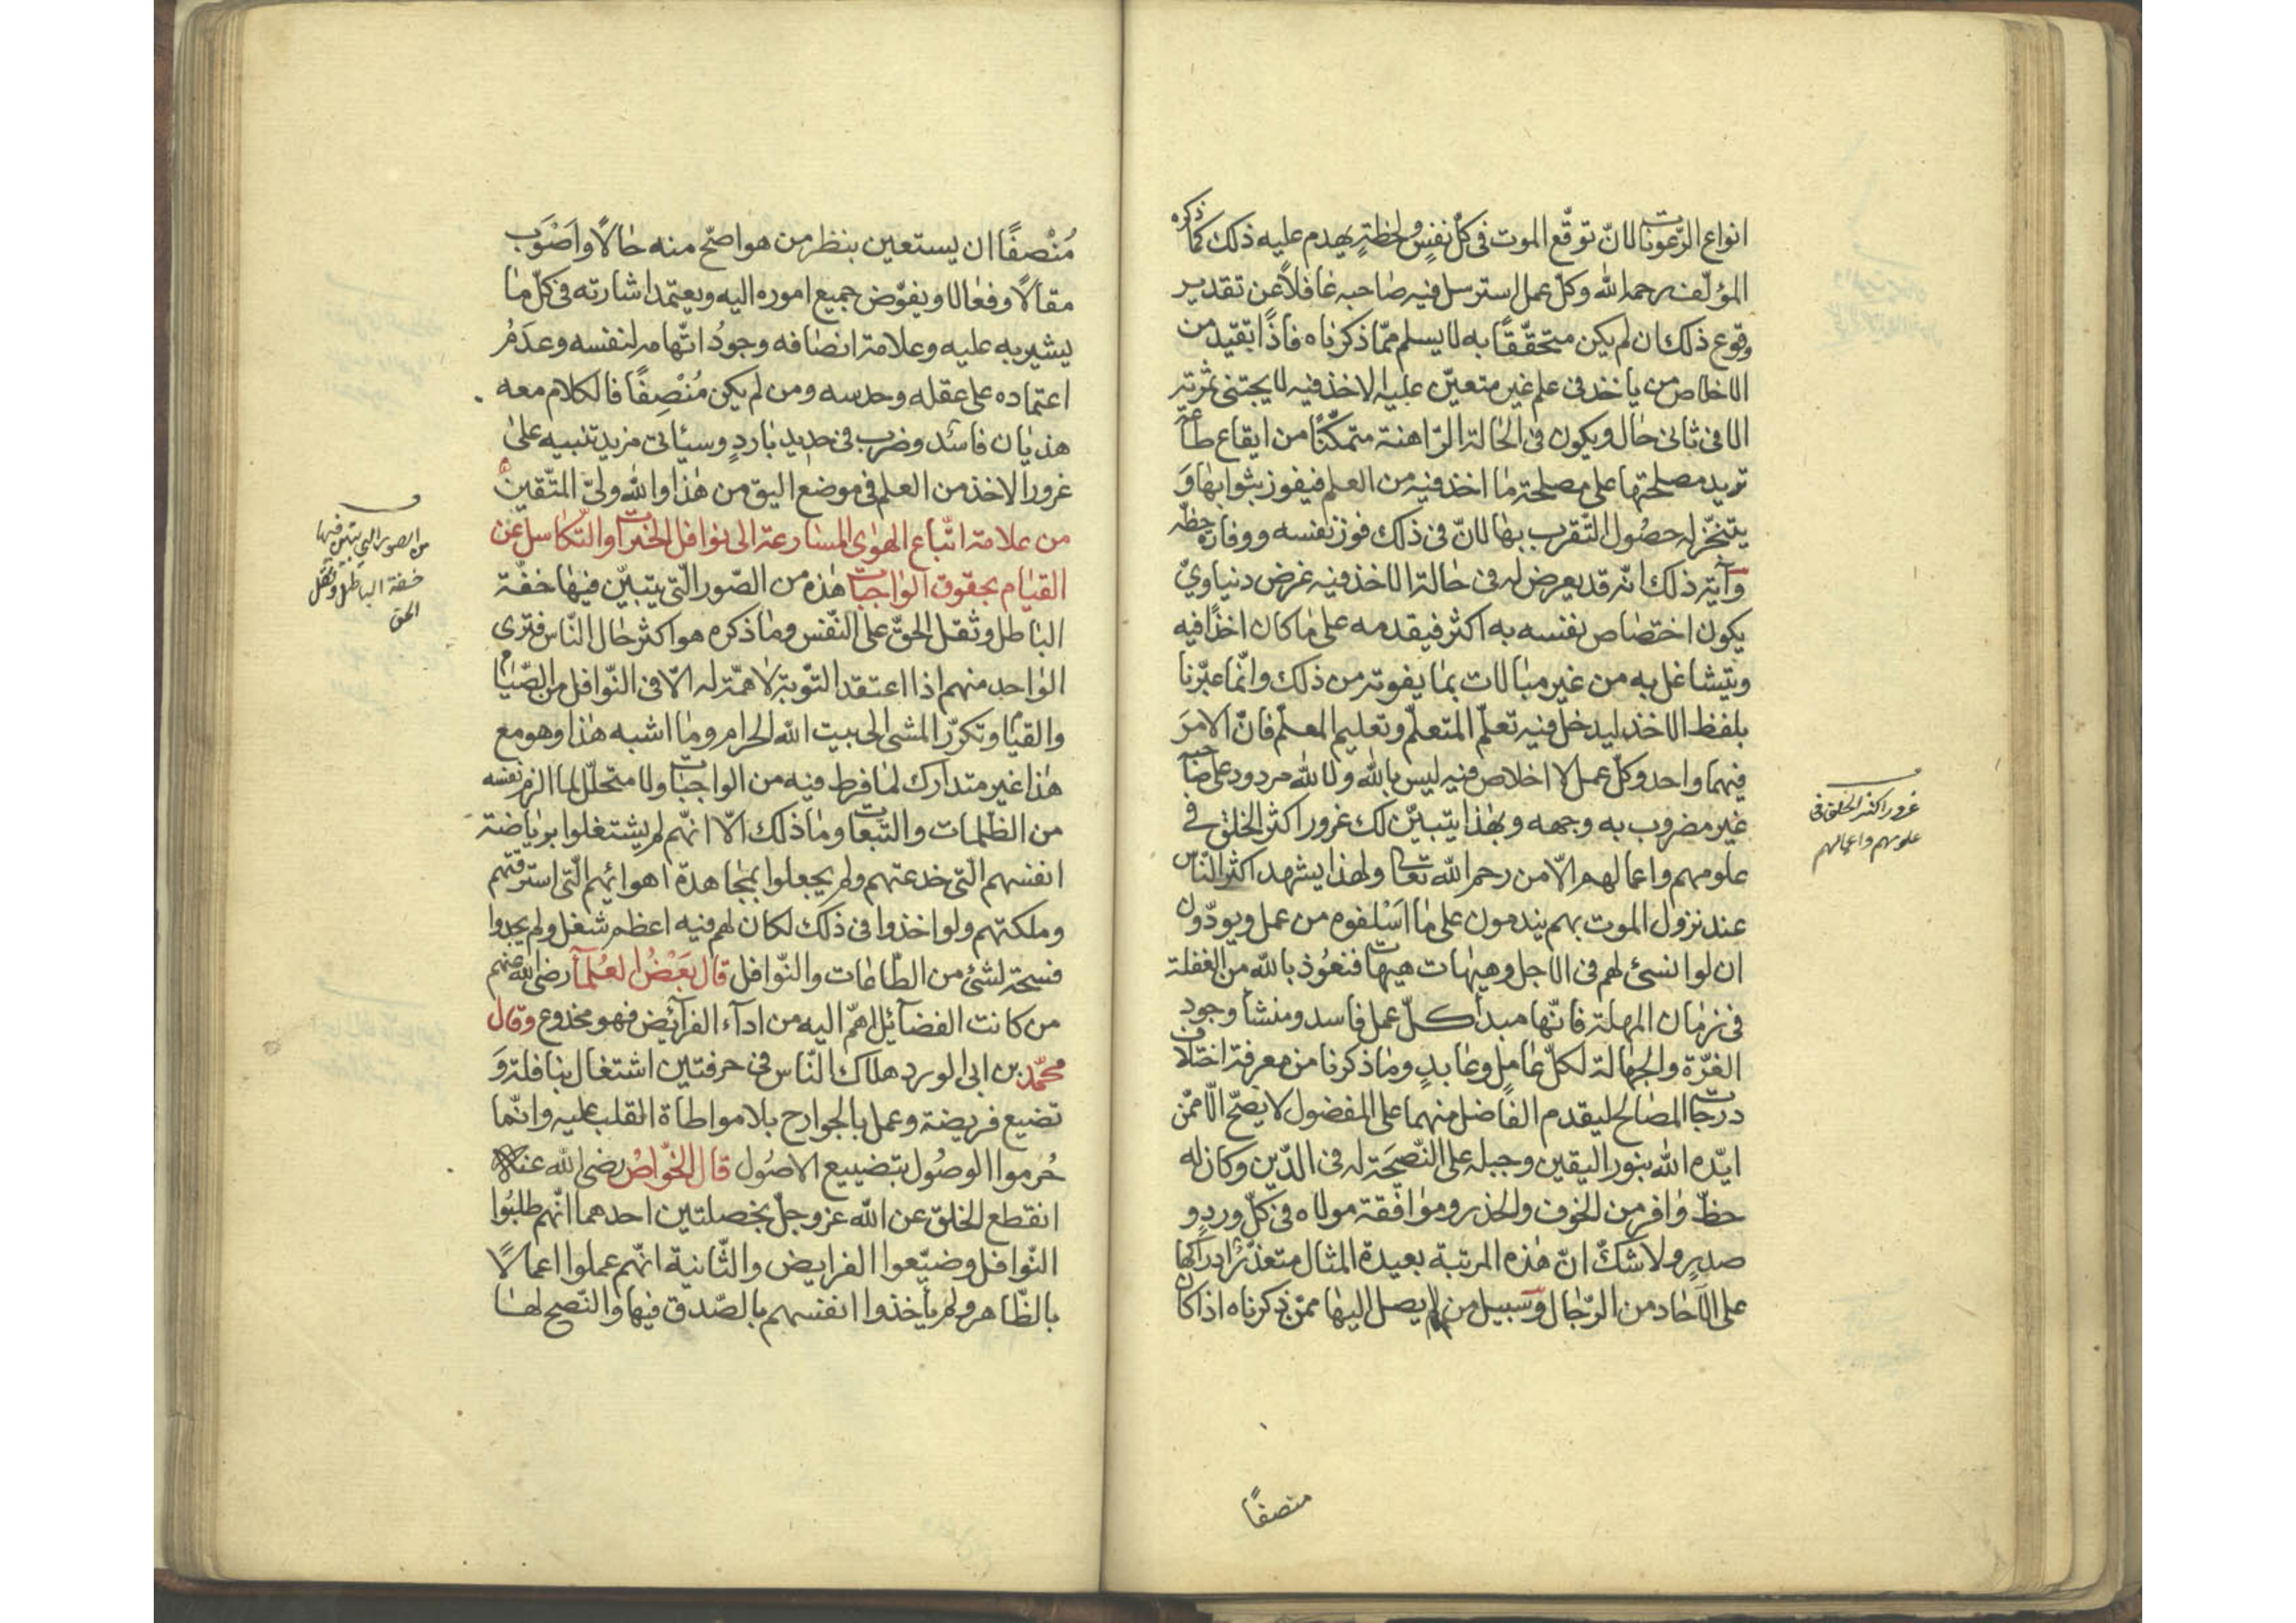 انواع الرّعونات لانّ توقّع الموت فى كلّ نفسٍ ولحظةٍ يهدم عليه ذلك كما ذكره
المؤلّف رحمه الله وكلّ عمل استرسل فيه صاحبه غافلاً عن تقدير
وقوع ذلك ان لم يكن متحقّقًا به لا يسلم ممّا ذكرناه فاذًا بقيد من
الاخلاص من ياخذ فى علم غير متعيّن عليه الاخذ فيه لا يجتنى ثمرته
الا فى ثانى حال ويكون فى الحالة الرّاهنة متمكّنًا من ايقاع طاعة
تزيد مصلحتها على مصلحة ما اخذ فيه من العلم فيفوز بثوابها وَ
يتنجّز له حصُول التّقرب بها لانّ فى ذلك فوز نفسه ووفارة حظّه
وآية ذلك انّه قد يعرض له فى حالة الاخذ فيه غرض دنياوىّ
يكون اختصاص نفسه به اكثر فيقدمه على ما كان اخذًا فيه
ويتشاغل به من غير مبالات بما يفوته من ذلك وانّما عبّرنا
بلفظ الاخذ ليدخل فيه تعلّم المتعلّم وتعليم المعلّم فانّ الامرَ
فيهما واحد وكلّ عمل لا اخلاص فيه ليس بالله ولا لله مردود على صاحبه
غير مضروب به وجهه وبهذا يتبيّن لك غرور اكثر الخلق فے
علومهم واعمالهم الّا من رحم الله تعالى ولهذا يشهد اكثر النّاس
عند نزول الموت بهم يندمون على ما اَسْلفوه من عمل ويودّون
ان لو انسئ لهم فى الاجل وهيهات هيهات فنعُوذ بالله من الغفلة
فى زمان المهلة فانّها مبدأ كلّ عمل فاسد ومنشأ وجود
الغرّة والجهالة لكلّ عاملٍ وعابدٍ وما ذكرنا من معرفة اختلاف
درجات المصالح ليقدم الفاضل منهما على المفضول لا يصحّ الّا ممّن
ايّده الله بنور اليقين وجبله على النّصيحَة له فى الدّين وكان له
حظّ وافر من الخوف والحذر وموافقة مولاه فى كلّ وردٍ و
صدرٍ ولا شكّ انّ هذه المرتبة بعيدة المثال متعذّرٌ ادراكها
على الآحاد من الرّجال وسبيل من لم يصل اليها ممّن ذكرناه اذا كان
غرور اكثر الخلق فى
علومهم واعمالهم
منصفًا
مُنْصفًا ان يستعين بنظر من هو اصحّ منه حالًا واَصْوَب
مقالًا وفعالا ويفوّض جميع اموره اليه ويعتمد اشارته فى كلّ ما
يشير به عليه وعلامة انصافه وجودُ اتّهامه لنفسه وعدَمُ
اعتماده على عقله وحدسه ومن لم يكن مُنْصِفًا فالكلام معه
هذيان فاسد وضرب فى حديد باردٍ وسيأتى مزيد تنبيه على
غرور الاخذ من العلم فى موضع اليق من هذا والله ولىّ المتّقين
من علامة اتّباع الهوى المسارعة الى نوافل الخيرات والتّكاسل عن
القيام بحقوق الواجبات هذه من الصّور الّتى يتبيّن فيها خفّة
الباطل وثقل الحقّ على النّفس وما ذكره هو اكثر حال النّاس فترى
الواحد منهم اذا اعتقد التّوبة لا همّة له الّا فى النّوافل من الصّيام
والقيام وتكرّر المشى الى بيت الله الحرام وما اشبه هذا وهو مع
هذا غير متدارك لما فرط فيه من الواجبات ولا متحلّل لما الزم نفسه
من الظّلامات والتّبعات وما ذلك الّا انّهم لم يشتغلوا برياضة
انفسهم الّتى خدعتهم ولم يجعلوا بمجاهدة اهوائهم الّتى استرقتهم
وملكتهم ولو اخذوا فى ذلك لكان لهم فيه اعظم شغل ولم يجدوا
فسحة لشئ من الطّاعات والنّوافل قال بَعْضُ العُلمآء رضى الله عنهم
من كانت الفضآئل اهمّ اليه من ادآء الفرآئض فهو مخدوع وقال
محمّد بن ابى الورد هلاك النّاس فى حرفتين اشتغال بنافلة وَ
تضيع فريضة وعمل بالجوارح بلا مواطاة القلب عليه وانّما
حُرموا الوصُول بتضييع الاصُول قال الخوّاصْ رضى الله عنه
انقطع الخلق عن الله عز وجلّ بخصلتين احدهما انّهم طلبُوا
النّوافل وضيّعوا الفرايض والثّانية انّهم عملوا اعمالًا
بالظّاهر ولم يأخذوا انفسهم بالصّدق فيها والنّصح لها
من الصور التى يتبين فيها
خفة الباطل وثقل
الحق